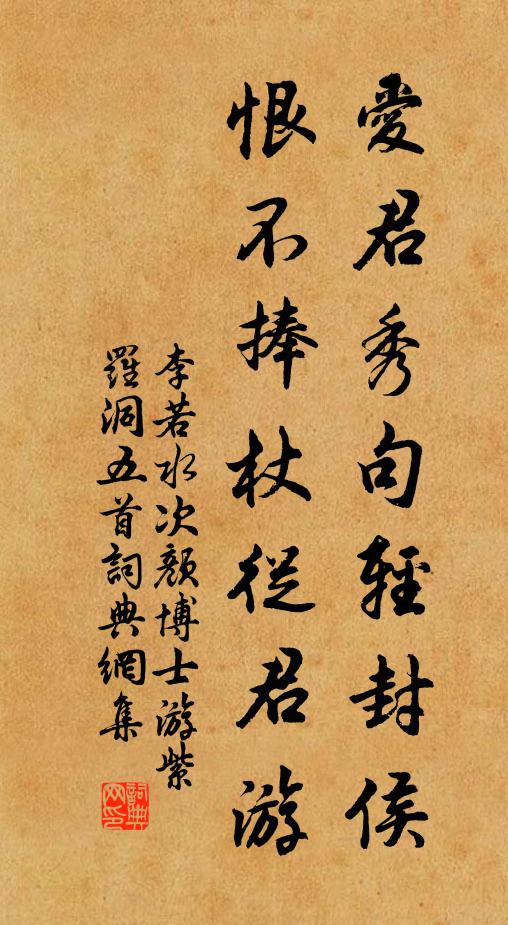 愛君秀句輕封侯
恨不捧杖從君游
李若水次顏博士游紫
羅洞五首詞典網集
詞典
网印